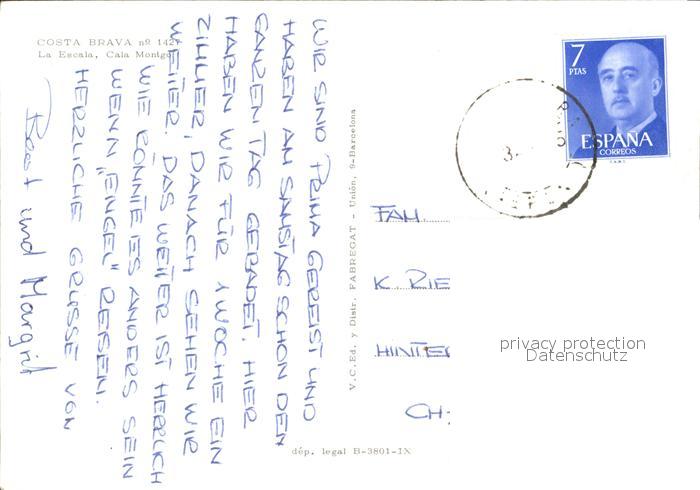 COSTA BRAVA nº 142
La Escala, Cala Montgó
WIR SIND PRIMA GEREIST UND
HABEN AM SAMSTAG SCHON DEN
GANZEN TAG GEBADET. HIER
HABEN WIR FÜR 1 WOCHE EIN
ZIMMER, DANACH SEHEN WIR
WEITER. DAS WETTER IST HERRLICH
WIE KÖNNTE ES ANDERS SEIN
WENN „ENGEL" REISEN.
HERZLICHE GRÜSSE VON
Beat und Margrit
V.C. Ed. y Distr. FABREGAT - Unión, 9-Barcelona
dép. legal B-3801-IX
7
PTAS
ESPAÑA
CORREOS
FAM.
K. RIE
HINTE
CH:
privacy protection
Datenschutz